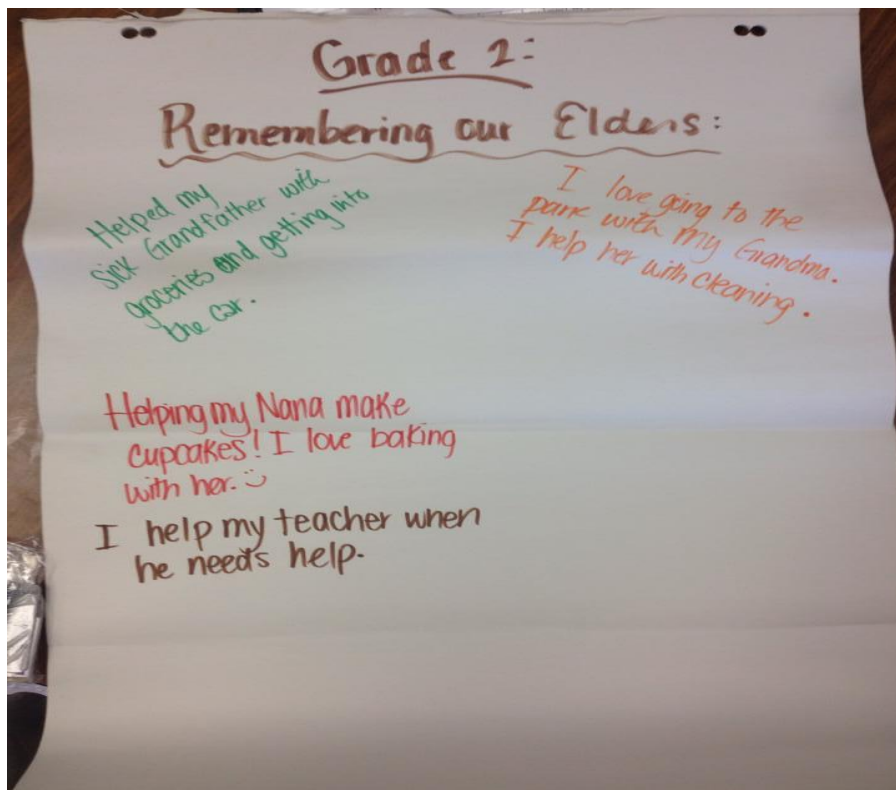 Grade 2:
Remembering our Elders:
Helped my
sick Grandfather with
groceries and getting into
the car.
I love going to the
park with my Grandma.
I help her with cleaning.
Helping my Nana make
cupcakes! I love baking
with her. :)
I help my teacher when
he needs help.